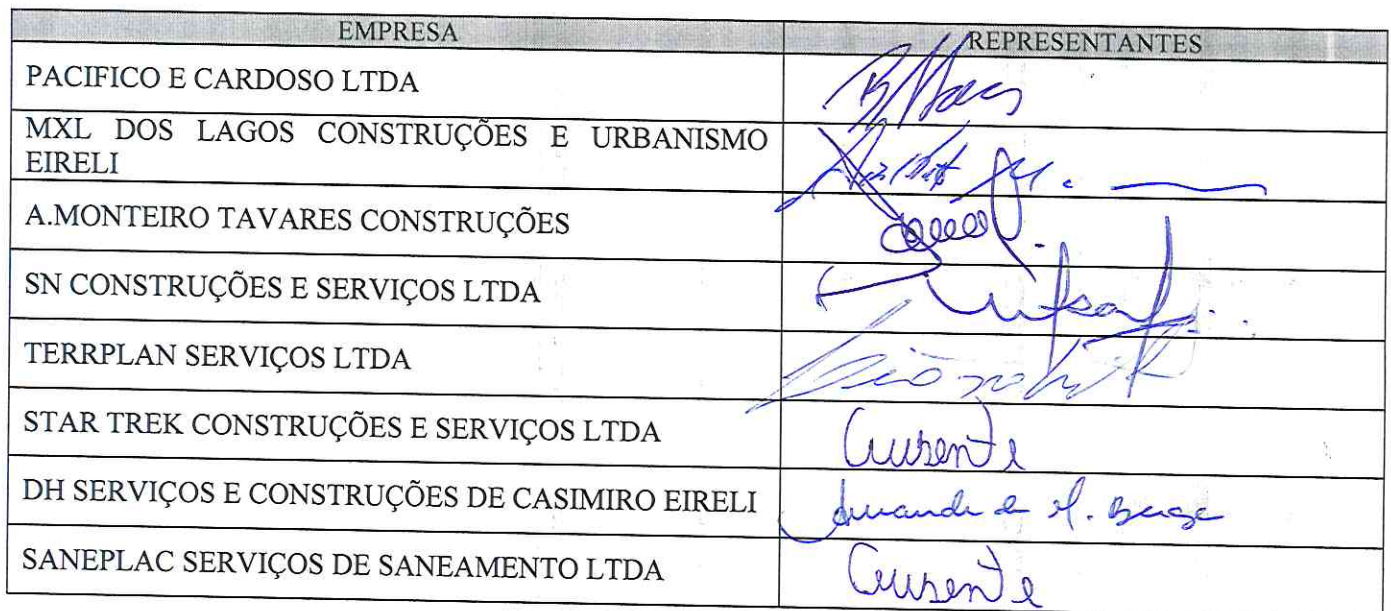 EMPRESA REPRESENTANTES
PACIFICO E CARDOSO LTDA
MXL DOS LAGOS CONSTRUÇÕES E URBANISMO
EIRELI
A.MONTEIRO TAVARES CONSTRUÇÕES
SN CONSTRUÇÕES E SERVIÇOS LTDA
TERRPLAN SERVIÇOS LTDA
STAR TREK CONSTRUÇÕES E SERVIÇOS LTDA Ausente
DH SERVIÇOS E CONSTRUÇÕES DE CASIMIRO EIRELI
SANEPLAC SERVIÇOS DE SANEAMENTO LTDA Ausente